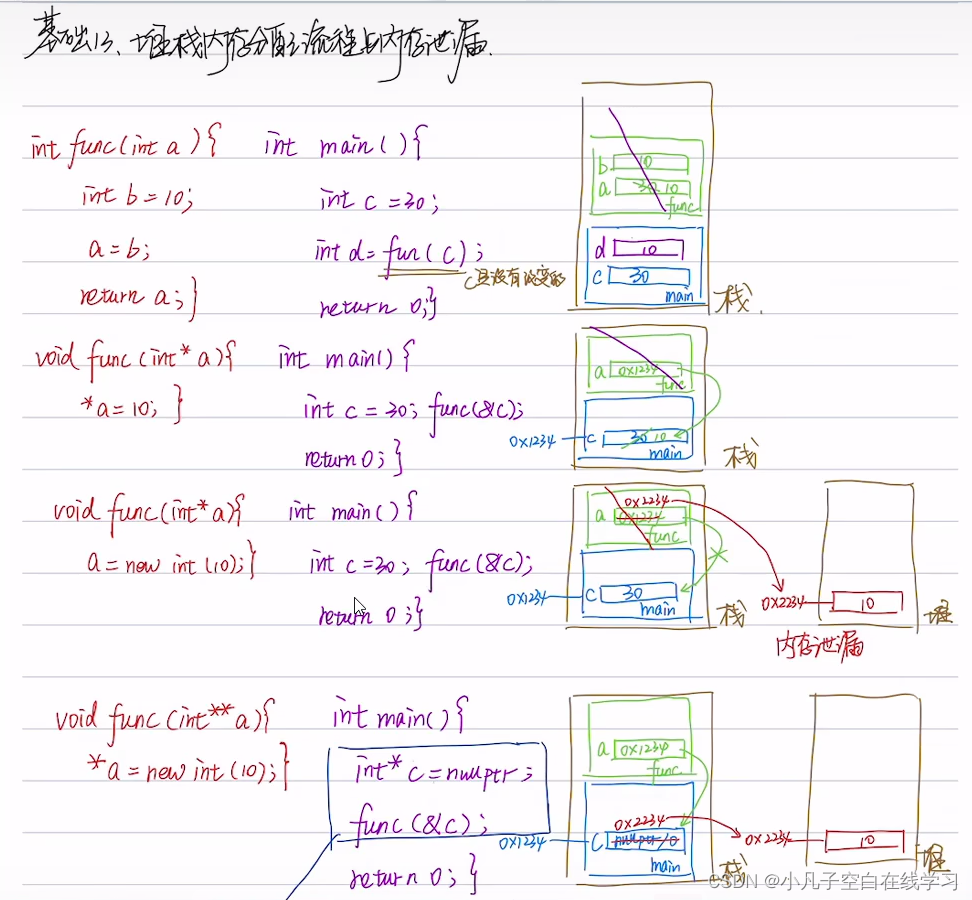 基础13、堆栈内存分配流程与内存泄漏.
int func(int a){
int b=10;
a=b;
return a;}
int main(){
int c=30;
int d=fun(c);
c是没有改变的
return 0;}
b 10
a 30 10
func
d 10
c 30
main
栈.
void func(int* a){
*a=10; }
int main(){
int c = 30; func(&c);
return 0;}
a 0x1234
func
0x1234 c 30 10
main
栈
void func(int* a){
a=new int(10);}
int main(){
int c=30; func(&c);
return 0;}
0x2234
a 0x1234
func
0x1234 c 30
main
栈
0x2234 10
堆
内存泄漏
void func(int** a){
*a=new int(10);}
int main(){
int* c=nullptr;
func(&c);
return 0;}
a 0x1234
func
0x2234
0x1234 c nullptr/0
main
栈
0x2234 10
堆
CSDN @小凡子空白在线学习